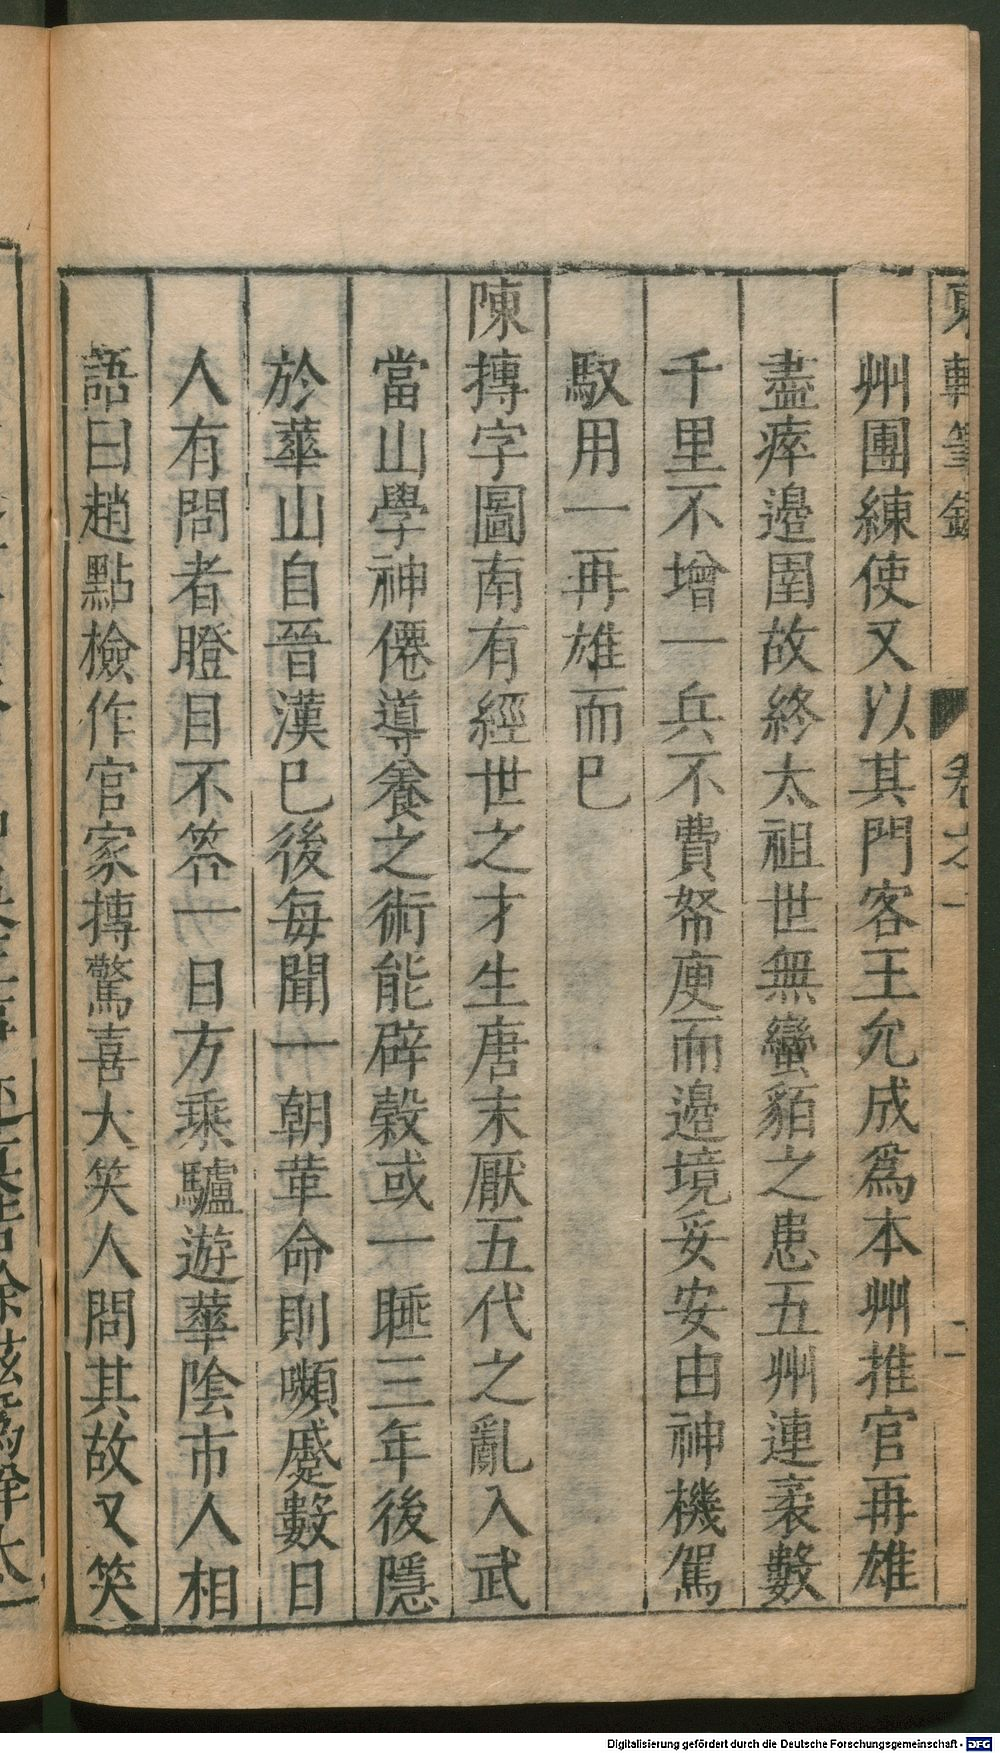 東軒筆錄
卷之一
二
州團練使又以其門客王允成爲本州推官再雄
盡瘁邊圉故終太祖世無蠻貊之患五州連袤數
千里不增一兵不費帑庾而邊境妥安由神機駕
馭用一再雄而已
陳摶字圖南有經世之才生唐末厭五代之亂入武
當山學神僊導養之術能辟穀或一睡三年後隱
於華山自晉漢已後每聞一朝革命則嚬蹙數日
人有問者瞪目不答一日方乘驢遊華陰市人相
語曰趙點檢作官家摶驚喜大笑人問其故又笑
Digitalisierung gefördert durch die Deutsche Forschungsgemeinschaft - DFG